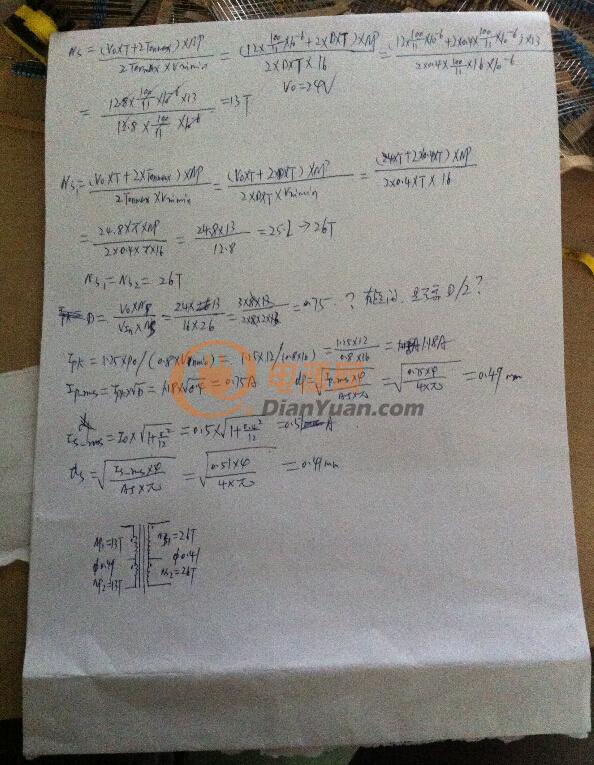 Ns = (Vo×T+2Tonmax)×NP / 2Tonmax×Vinmin = (12×100/11×10⁻⁶+2×D×T)×NP / 2×D×T×16 = (12×100/11×10⁻⁶+2×0.4×100/11×10⁻⁶)×13 / 2×0.4×100/11×16×10⁻⁶
= 12.8×100/11×10⁻⁶×13 / 12.8×100/11×10⁻⁶ = 13T Vo=24V
Ns₁ = (Vo×T+2×Tonmax)×NP / 2Tonmax×Vinmin = (Vo×T+2×D×T)×NP / 2×D×T×Vinmin = (24×T+2×0.4×T)×NP / 2×0.4×T×16
= 24.8×T×NP / 2×0.4×T×16 = 24.8×13 / 12.8 = 25.2 → 26T
Ns₁ = Ns₂ = 26T
D = Vo×Np / Vin×Ns = 24×13 / 16×26 = 3×8×13 / 2×8×2×13 = 0.75 ? D/2?
Ipk = 1.25×Po/(0.8×Vinmin) = 1.25×12/(0.8×16) = 1.25×12 / 0.8×16 = 1.18A
Ip-rms = Ipk×√D = 1.18×√0.4 = 0.75A dp = √(Ip-rms×4 / AJ×π) = √(0.75×4 / 4×π) = 0.49mm
Is-rms = Io×√1+ /12 = 0.5×√1+ /12 = 0.5 A
ds = √(Is-rms×4 / AJ×π) = √(0.51×4 / 4×π) = 0.41mm
Np1=13T Ns1=26T
φ0.49 φ0.41
Np2=13T Ns2=26T
电源网
DianYuan.com